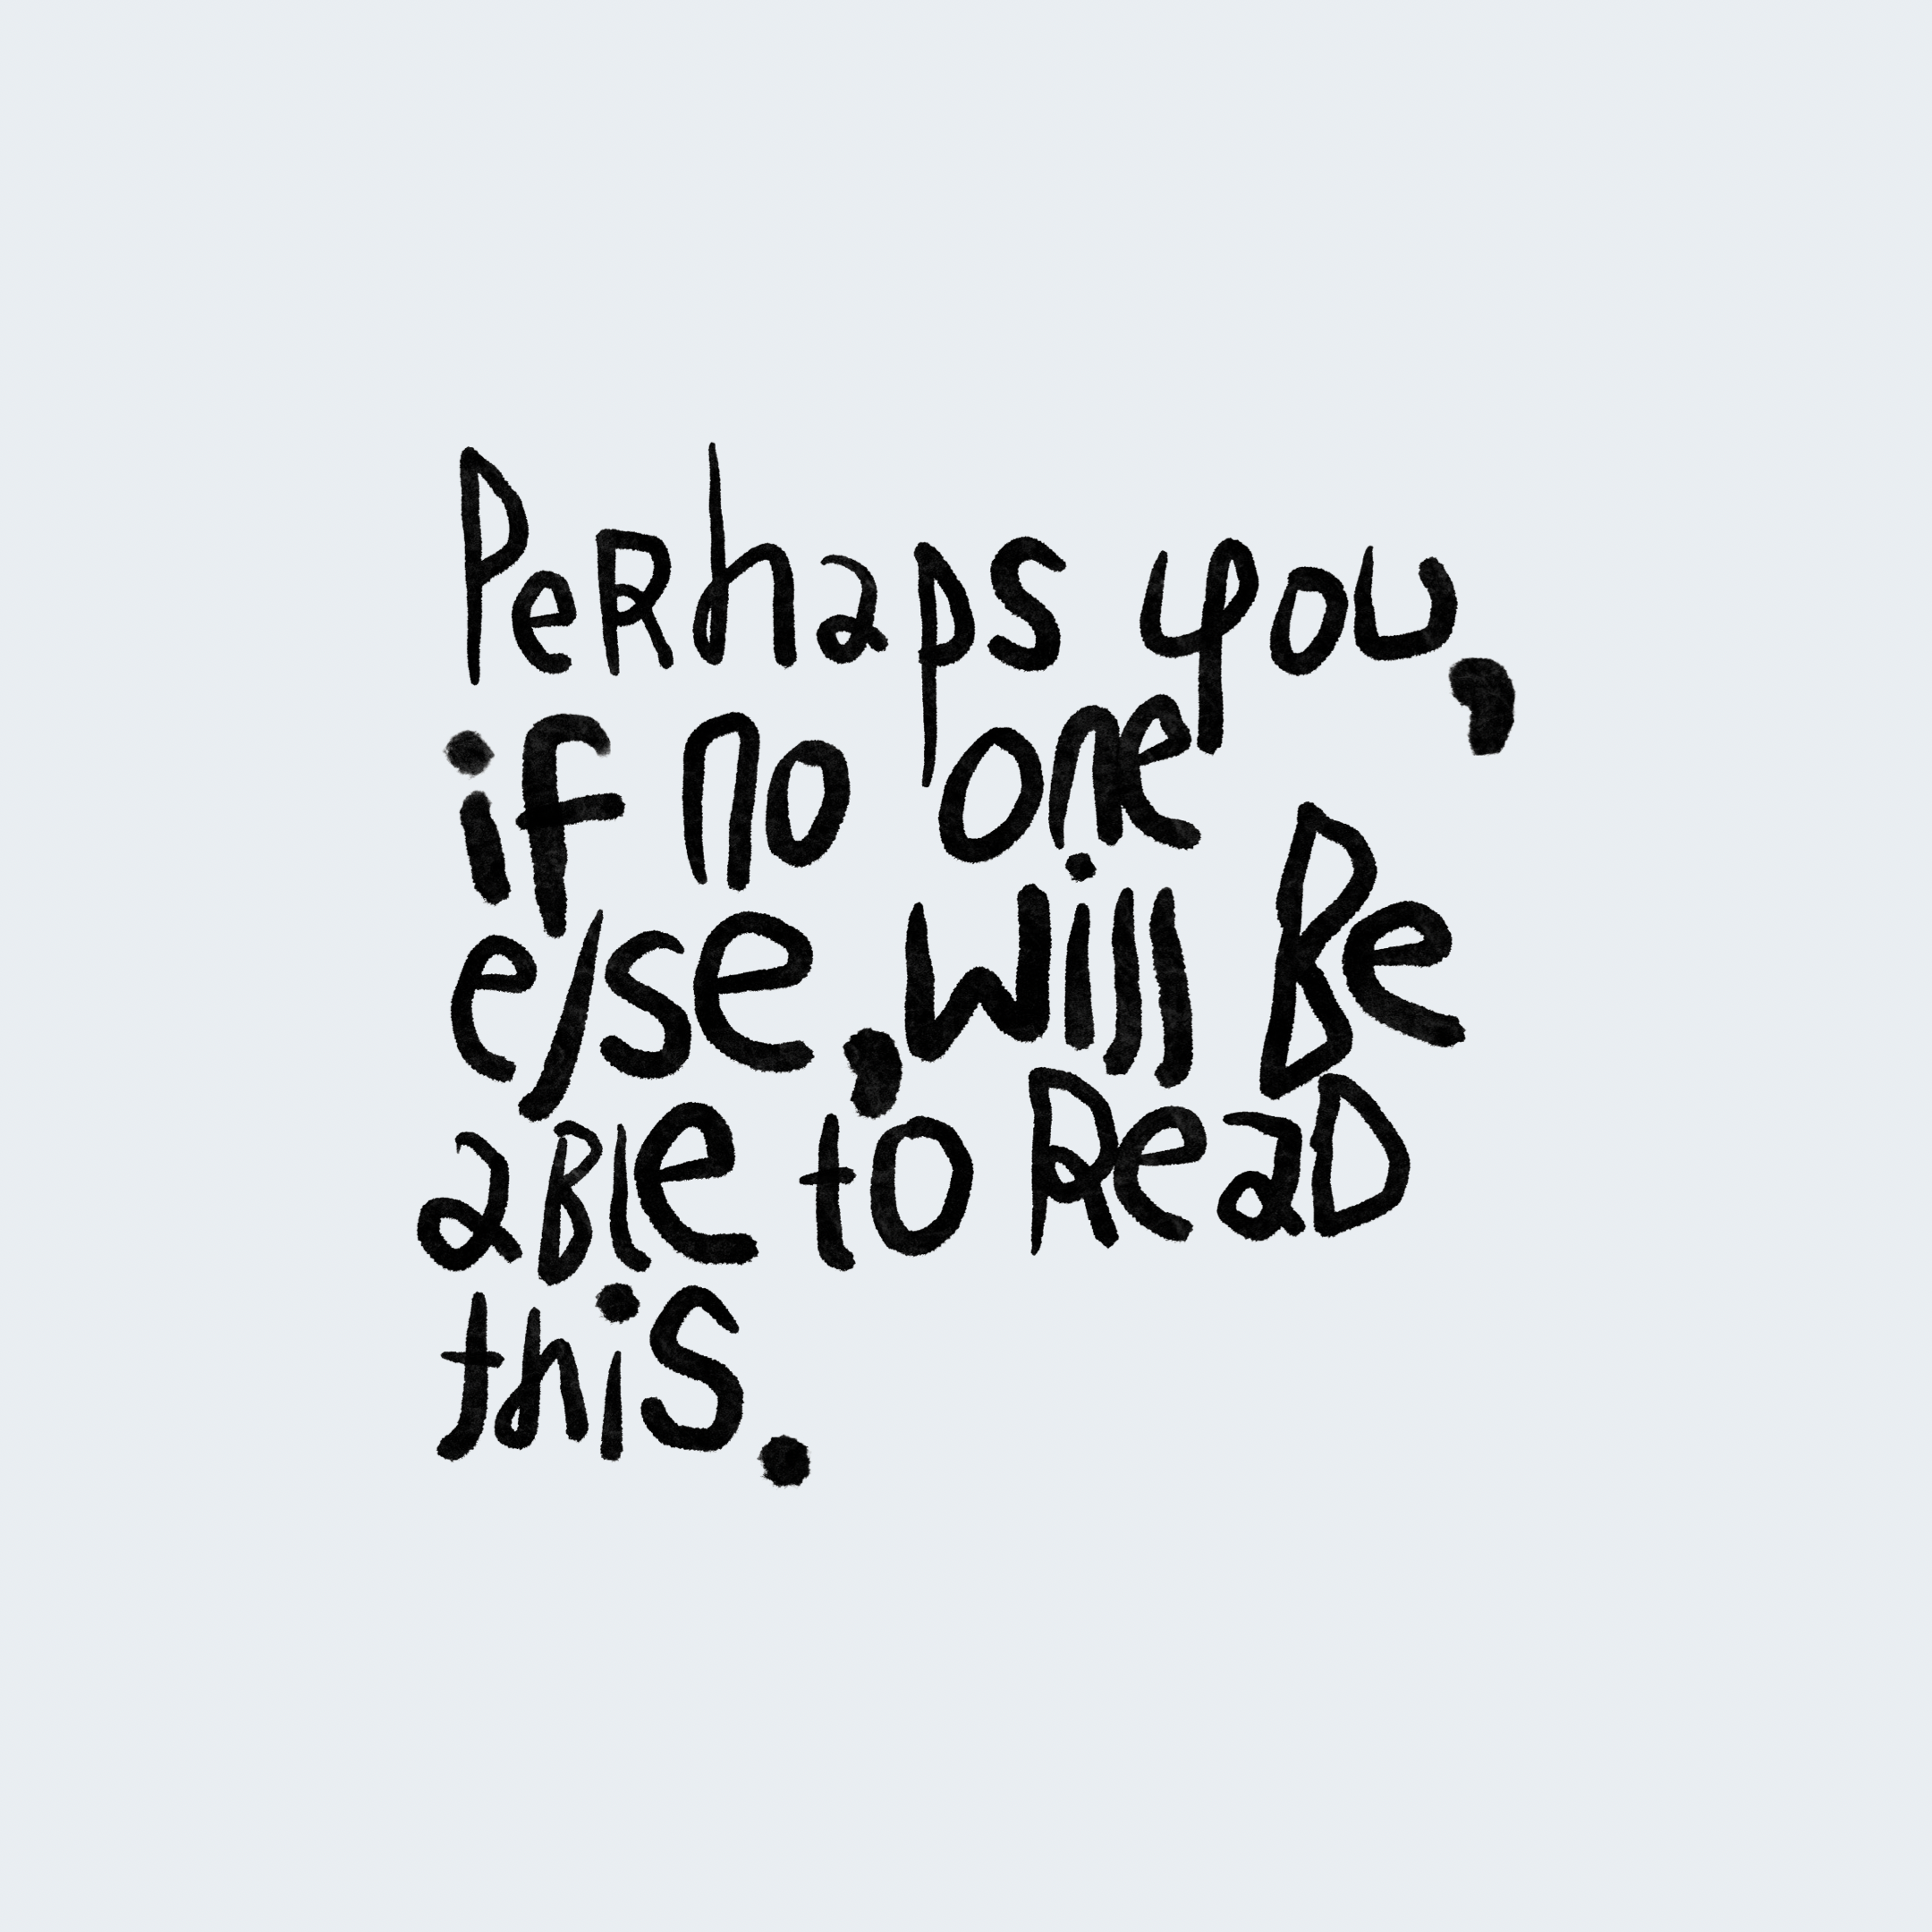 PeRhaps you,
if no one
else, will Be
aBle to ReaD
this.